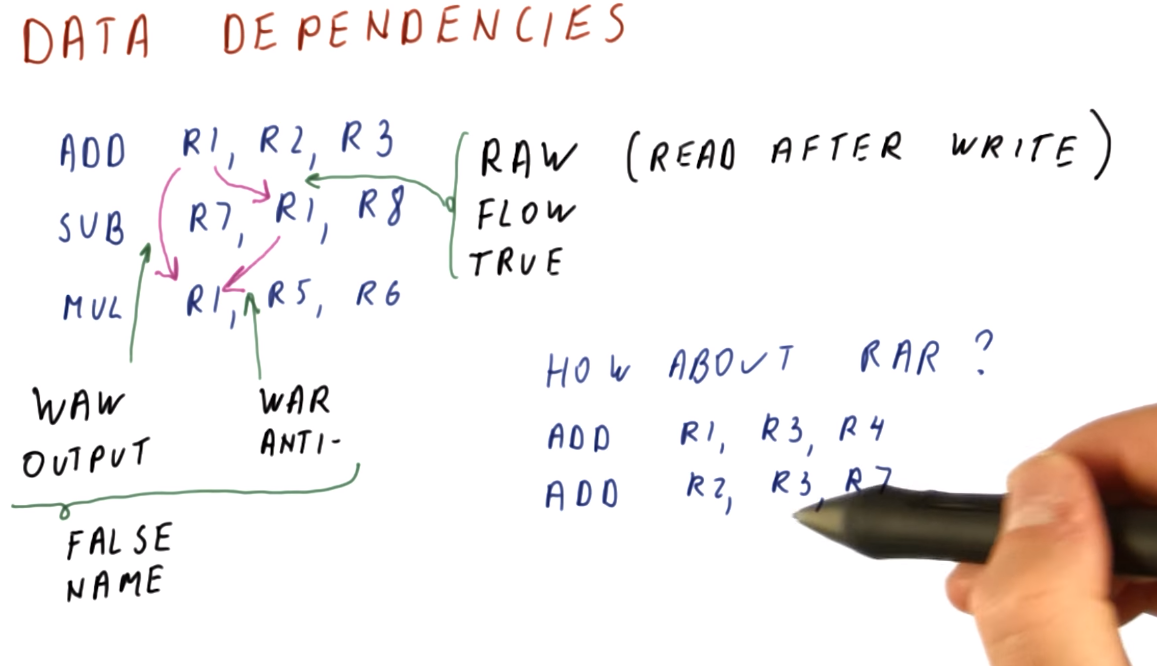 DATA DEPENDENCIES
ADD R1, R2, R3
SUB R7, R1, R8
MUL R1, R5, R6
RAW (READ AFTER WRITE)
FLOW
TRUE
WAW
OUTPUT
WAR
ANTI-
FALSE
NAME
HOW ABOUT RAR ?
ADD R1, R3, R4
ADD R2, R3, R7